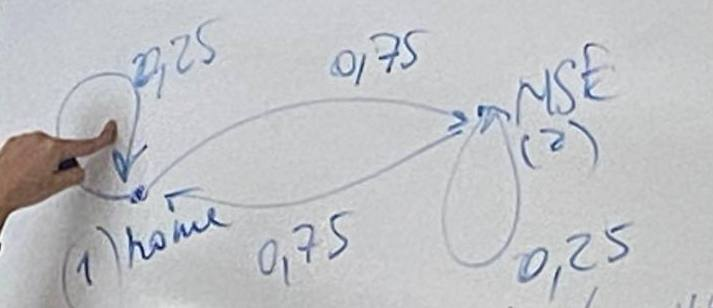 0,25
0,75
NSE
(2)
(1) home
0,75
0,25